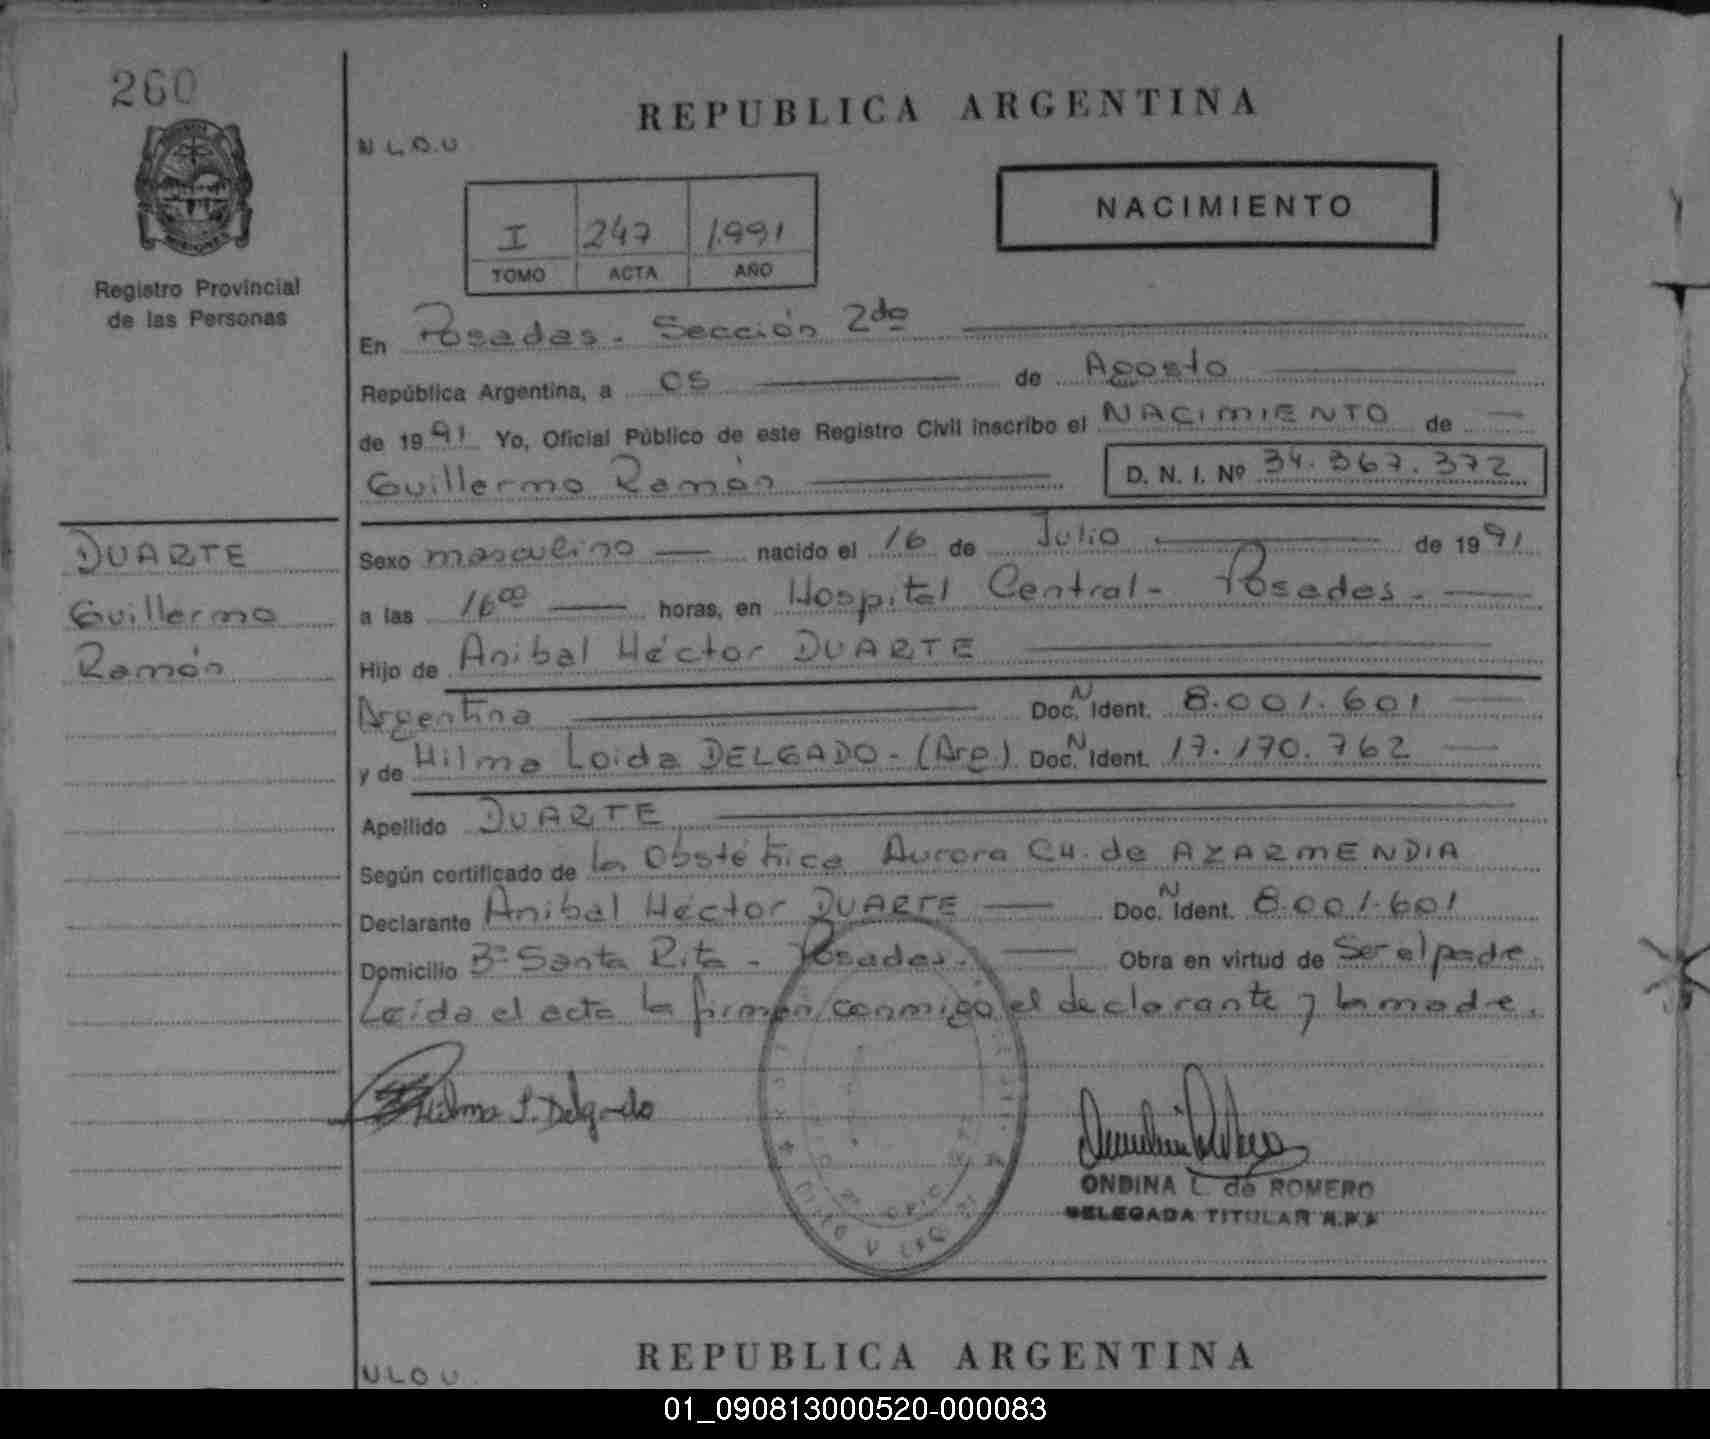 260
REPUBLICA ARGENTINA
N L.O.U
NACIMIENTO
I 247 1.991
TOMO ACTA AÑO
Registro Provincial
de las Personas
En Posadas - Sección 2da
República Argentina, a 05 de Agosto
de 1991 Yo, Oficial Público de este Registro Civil inscribo el NACIMIENTO de
Guillermo Ramón D. N. I. Nº 34.367.372
DUARTE
Guillermo
Ramón
Sexo masculino nacido el 16 de Julio de 1991
a las 16⁰⁰ horas, en Hospital Central - Posadas -
Hijo de Anibal Héctor DUARTE
Argentina Doc. N Ident. 8.001.601
y de Hilma Loida DELGADO - (Arg.) Doc. N Ident. 17.170.762
Apellido DUARTE
Según certificado de la Obstétrica Aurora CH. de AZARMENDIA
Declarante Anibal Héctor DUARTE Doc. N Ident. 8.001.601
Domicilio Bº Santa Rita - Posadas - Obra en virtud de Ser el padre.
Leída el acta la firman conmigo el declarante y la madre.
Hilma L. Delgado
ONDINA L. de ROMERO
DELEGADA TITULAR R.P.P
REPUBLICA ARGENTINA
N L O U.
01_090813000520-000083